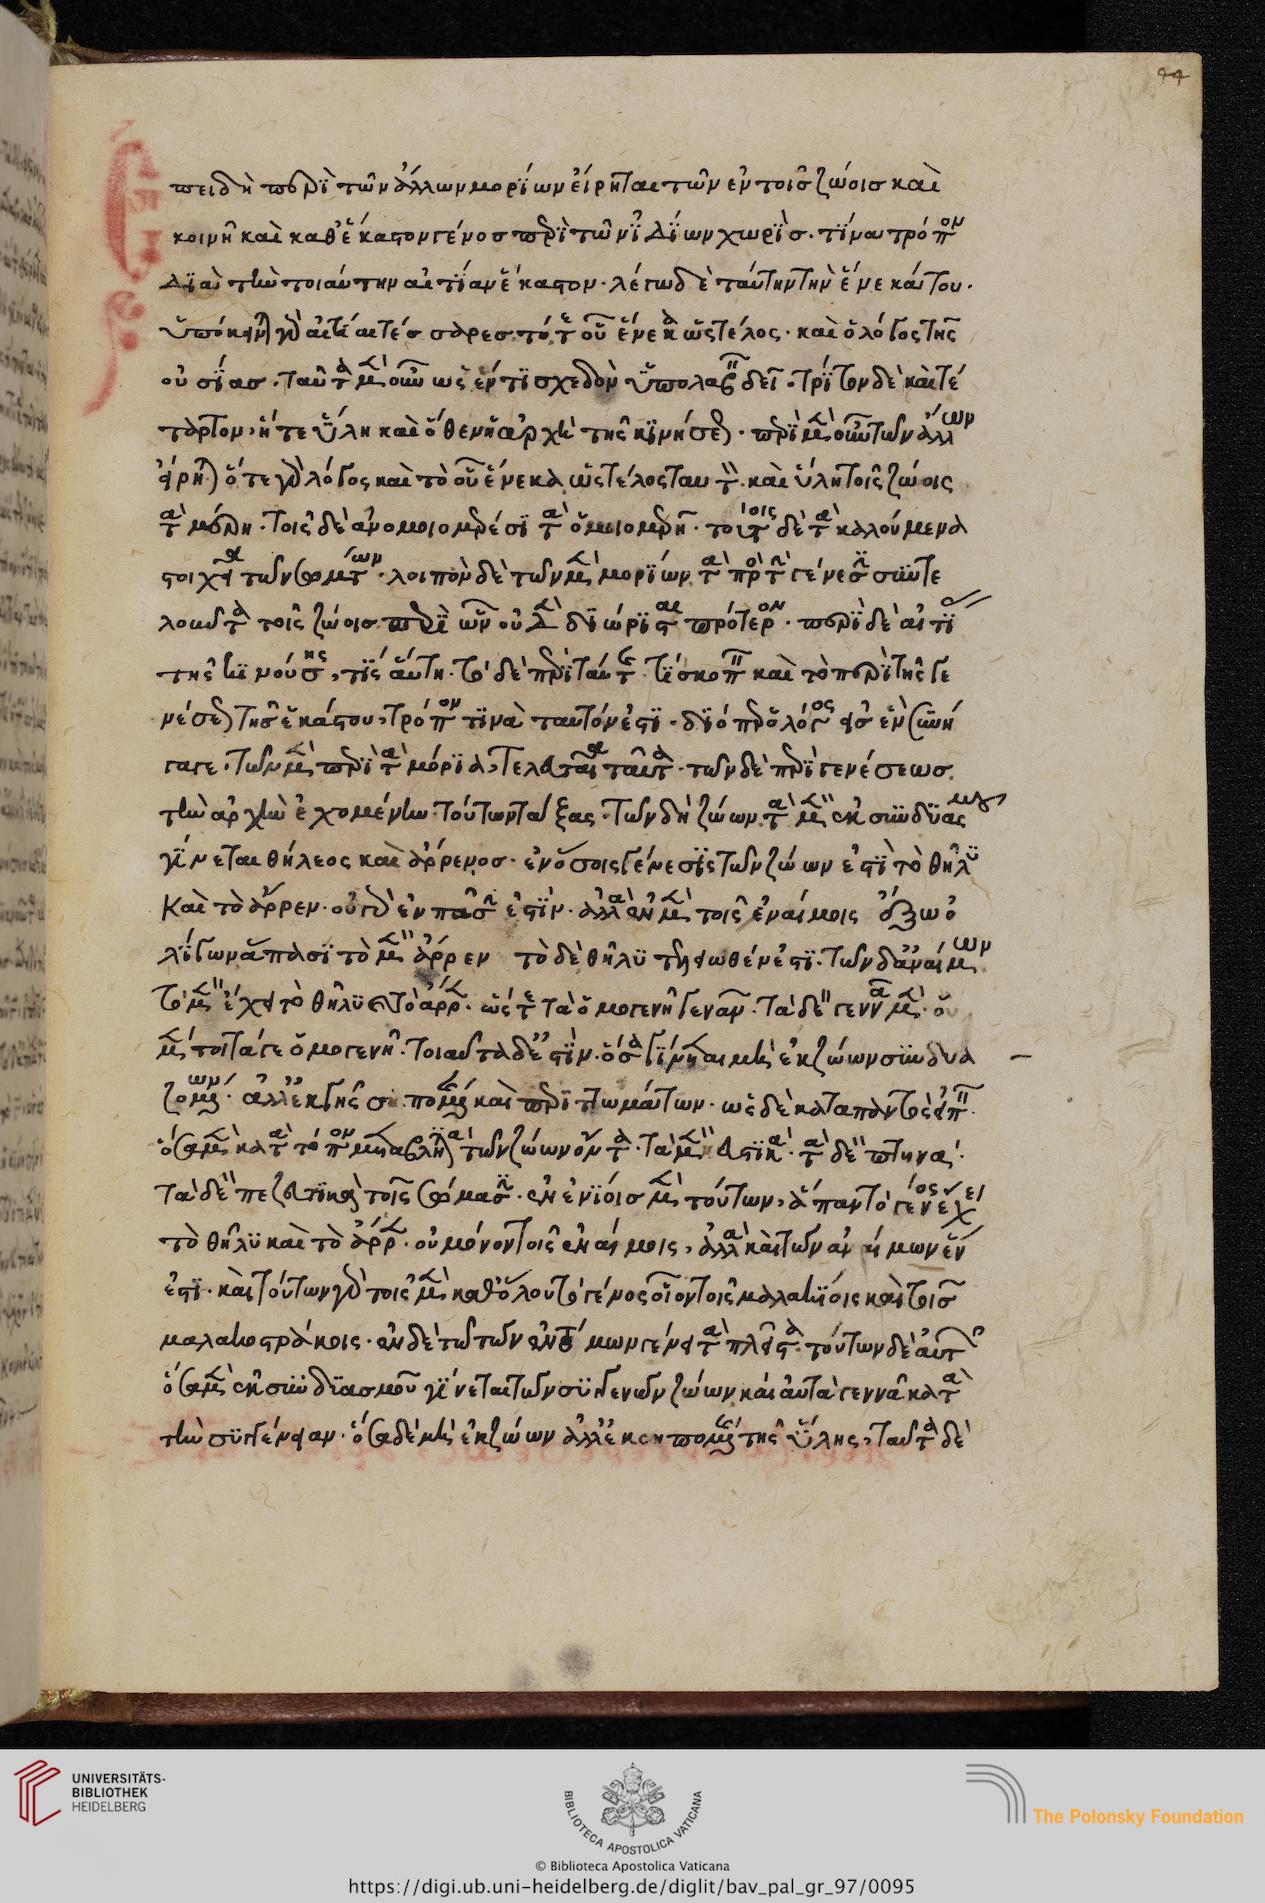 44
Ἐπειδὴ περὶ τῶν ἄλλων μορίων εἴρηται τῶν ἐν τοῖσ ζώοισ καὶ
κοινῆ καὶ καθ' ἕκαστον γένοσ περὶ τῶν ἰδίων χωρὶσ. τίνα τρόπον
διὰ τὴν τοιαύτην αἰτίαν ἕκαστον. λέγω δὲ ταύτην τὴν ἕνεκά του.
ὑπόκεινται γὰρ αἰτίαι τέσσαρεσ. τό τε οὗ ἕνεκα ὡς τέλος. καὶ ὁ λόγος τῆς
οὐσίασ. ταῦτα μὲν οὖν ὡς ἕν τι σχεδὸν ὑπολαβεῖν δεῖ. τρίτον δὲ καὶ τέ
ταρτον. ἥ τε ὕλη καὶ ὅθεν ἡ ἀρχὴ τῆς κινήσεως. περὶ μὲν οὖν τῶν ἄλλων
εἴρηται ὅ τε γὰρ λόγος καὶ τὸ οὗ ἕνεκα ὡς τέλος ταυτὸν. καὶ ὕλη τοῖς ζώοις
τὰ μέρη. τοῖς δὲ ἀνομοιομερέσι τὰ ὁμοιομερῆ. τούτοις δὲ τὰ καλούμενα
στοιχεῖα τῶν σωμάτων. λοιπὸν δὲ τῶν μὲν μορίων τὰ πρὸς τὴν γένεσιν συντε
λοῦντα τοῖς ζώοισ περὶ ὧν οὐδὲν διώρισται πρότερον. περὶ δὲ αἰτίας
τῆς κινούσης, τίς αὕτη. τὸ δὲ περὶ ταύτης τε σκοπεῖν καὶ τὸ περὶ τῆς γε
νέσεως τῆσ ἑκάστου, τρόπον τινὰ ταυτόν ἐστι. διόπερ ὁ λόγος εἰσ ἓν συνή
γαγε. τῶν μὲν περὶ τὰ μόρια, τελευταῖα ταῦτα. τῶν δὲ περὶ γενέσεωσ
τὴν ἀρχὴν ἐχομένην τούτων τάξας. τῶν δὴ ζώων τὰ μὲν ἐκ συνδυασμοῦ
γίνεται θήλεος καὶ ἄρρενοσ. ἐν ὅσοις γένεσις τῶν ζώων ἐστὶ τὸ θῆλυ
καὶ τὸ ἄρρεν. οὐ γὰρ ἐν πᾶσιν ἐστίν. ἀλλὰ ἐν μὲν τοῖς ἐναίμοις ἔξω ὀ
λίγων ἅπασι τὸ μὲν ἄρρεν τὸ δὲ θῆλυ τελειωθέν ἐστι. τῶν δ' ἀναίμων
τὰ μὲν ἔχει τὸ θῆλυ καὶ τὸ ἄρρεν. ὥστε τὰ ὁμογενῆ γεννᾶν. τὰ δὲ γεννᾶ μὲν. οὐ
μέντοι τά γε ὁμογενῆ. τοιαῦτα δέ ἐστιν. ὅσα γίνεται μὴ ἐκ ζώων συνδυα
ζομένων. ἀλλ' ἐκ γῆς σηπομένης καὶ περιττωμάτων. ὡς δὲ κατὰ παντὸς εἰπεῖν.
ὅσα μὲν κατὰ τόπον μεταβλητικὰ τῶν ζώων ὄντα. τὰ μὲν νευστικὰ. τὰ δὲ πτηνὰ.
τὰ δὲ πεζευτικὰ τοῖς σώμασιν. ἐν ἐνίοισ μὲν τούτων, ἅπαν τὸ γένος ἔχει
τὸ θῆλυ καὶ τὸ ἄρρεν. οὐ μόνον τοῖς ἐναίμοις, ἀλλὰ καὶ τῶν ἀναίμων ἐν
ἐστι. καὶ τούτων γὰρ τοῖς μὲν καθόλου τὸ γένος οἷον τοῖς μαλακίοις καὶ τοῖσ
μαλακοστράκοις. ἐν δὲ τῶ τῶν ἐντόμων γένει τὰ πλεῖστα. τούτων δὲ αὐτῶν
ὅσα μὲν ἐκ συνδιασμοῦ γίνεται τῶν συγγενῶν ζώων καὶ αὐτὰ γεννᾶ κατὰ
τὴν συγγένειαν. ὅσα δὲ μὴ ἐκ ζώων ἀλλ' ἐκ σηπομένης τῆς ὕλης, ταῦτα δὲ
UNIVERSITÄTS-
BIBLIOTHEK
HEIDELBERG
BIBLIOTECA APOSTOLICA VATICANA
The Polonsky Foundation
© Biblioteca Apostolica Vaticana
https://digi.ub.uni-heidelberg.de/diglit/bav_pal_gr_97/0095